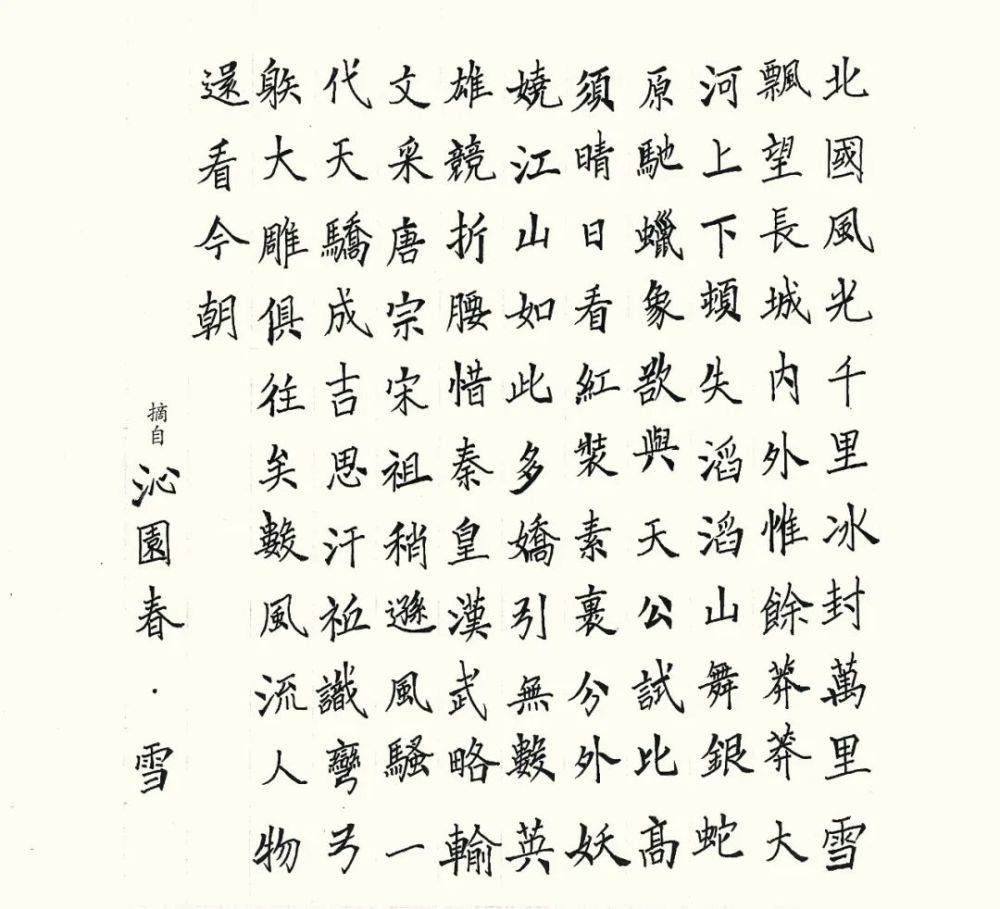 北國風光千里冰封萬里雪
飄望長城内外惟餘莽莽大
河上下頓失滔滔山舞銀蛇
原馳蠟象欲與天公試比髙
須晴日看紅裝素裹分外妖
嬈江山如此多嬌引無數英
雄競折腰惜秦皇漢武略輸
文采唐宗宋祖稍遜風騷一
代天驕成吉思汗祗識彎弓
射大雕俱往矣數風流人物
還看今朝
摘自
沁園春·雪